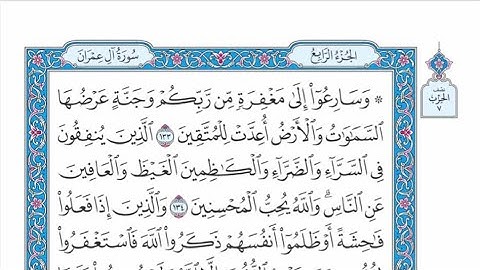 سُورَةُ آلِ عِمْرَانَ
الجُزْءُ الرَّابِعُ
نصف
الحزب
٧
* وَسَارِعُوٓاْ إِلَىٰ مَغْفِرَةٖ مِّن رَّبِّكُمْ وَجَنَّةٍ عَرْضُهَا
ٱلسَّمَٰوَٰتُ وَٱلْأَرْضُ أُعِدَّتْ لِلْمُتَّقِينَ ١٣٣ ٱلَّذِينَ يُنفِقُونَ
فِي ٱلسَّرَّآءِ وَٱلضَّرَّآءِ وَٱلْكَٰظِمِينَ ٱلْغَيْظَ وَٱلْعَافِينَ
عَنِ ٱلنَّاسِۗ وَٱللَّهُ يُحِبُّ ٱلْمُحْسِنِينَ ١٣٤ وَٱلَّذِينَ إِذَا فَعَلُواْ
فَٰحِشَةً أَوْ ظَلَمُوٓاْ أَنفُسَهُمْ ذَكَرُواْ ٱللَّهَ فَٱسْتَغْفَرُواْ